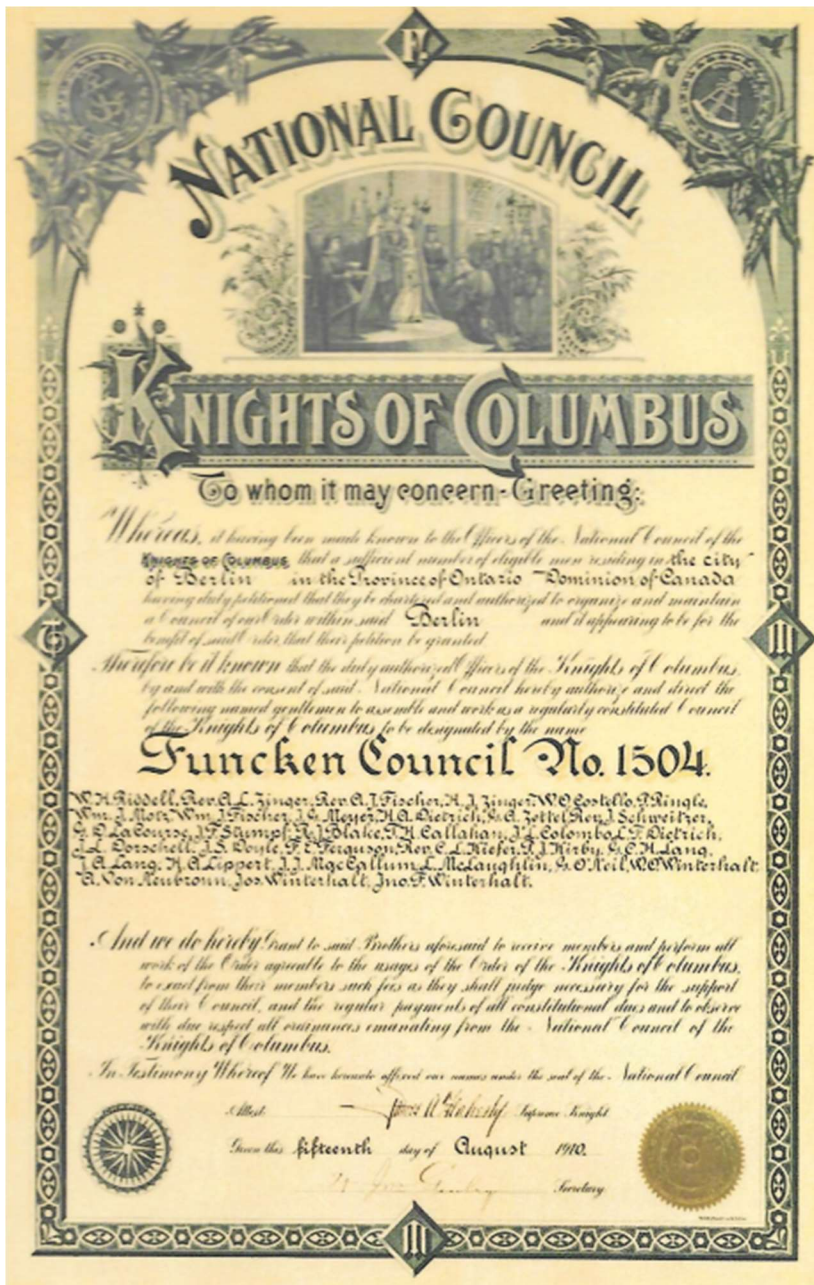 F.
NATIONAL COUNCIL
KNIGHTS OF COLUMBUS
To whom it may concern - Greeting:
Whereas, it having been made known to the Officers of the National Council of the
KNIGHTS OF COLUMBUS, that a sufficient number of eligible men residing in the city
of Berlin in the Province of Ontario Dominion of Canada
having duly petitioned that they be chartered and authorized to organize and maintain
a Council of our Order within said Berlin and it appearing to be for the
benefit of said Order that their petition be granted
Therefore be it known that the duly authorized Officers of the Knights of Columbus,
by and with the consent of said National Council hereby authorize and direct the
following named gentlemen to assemble and work as a regularly constituted Council
of the Knights of Columbus to be designated by the name
Funcken Council No. 1504.
W. H. Riddell, Rev. A. L. Zinger, Rev. A. J. Fischer, H. J. Zinger, W. O. Costello, P. Ringle,
Wm. J. Motz, Wm. J. Fischer, J. G. Meyer, H. A. Dietrich, G. A. Zettel, Rev. J. Schweitzer,
G. D. LaCourse, J. F. Stumpf, R. J. Blake, F. H. Callahan, J. L. Colombo, L. F. Dietrich,
J. L. Dorschell, J. S. Doyle, F. E. Ferguson, Rev. C. L. Kiefer, R. J. Kirby, G. C. H. Lang,
J. A. Lang, H. A. Lippert, J. J. MacCallum, L. McLaughlin, G. O'Neil, W. O. Winterhalt
A. Von Neubronn, Jos. Winterhalt, Jno. F. Winterhalt.
And we do hereby Grant to said Brothers aforesaid to receive members and perform all
work of the Order agreeable to the usages of the Order of the Knights of Columbus,
to exact from their members such fees as they shall judge necessary for the support
of their Council, and the regular payments of all constitutional dues and to observe
with due respect all ordinances emanating from the National Council of the
Knights of Columbus.
In Testimony Whereof We have hereunto affixed our names under the seal of the National Council
Attest: Supreme Knight
Given this fifteenth day of August 1910.
Secretary